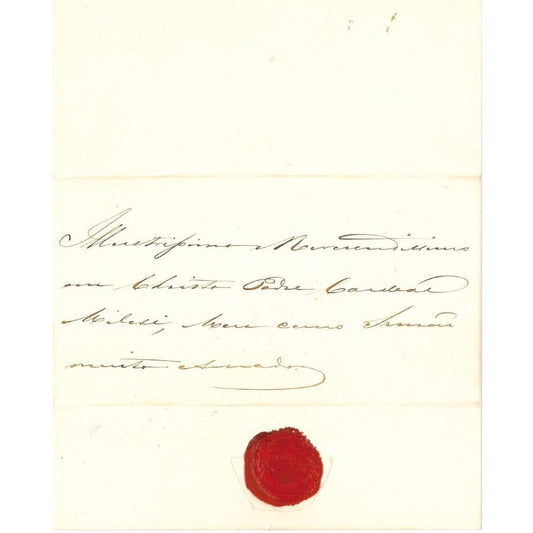 Illustrissimo Reverendissimo
em Christo Padre Cardeal
Milesi, Meu como Irmão
muito Amado.